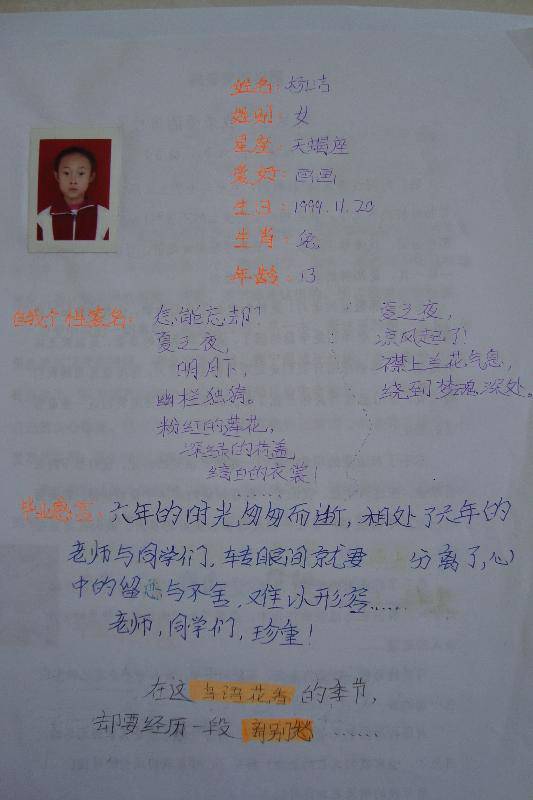 姓名：杨洁
性别：女
星座：天蝎座
爱好：画画
生日：1999.11.20
生肖：兔
年龄：13
自我个性签名：怎能忘却？
夏之夜，
明月下，
幽栏独猗。
粉红的莲花，
深绿的荷盖，
缟白的衣裳！
……
夏之夜，
凉风起了！
襟上兰花气息，
绕到梦魂深处。
毕业感言：六年的时光匆匆而逝，相处了六年的
老师与同学们，转眼间就要 分离了，心
中的留恋与不舍，难以形容……
老师，同学们，珍重！
在这鸟语花香的季节，
却要经历一段离别愁……